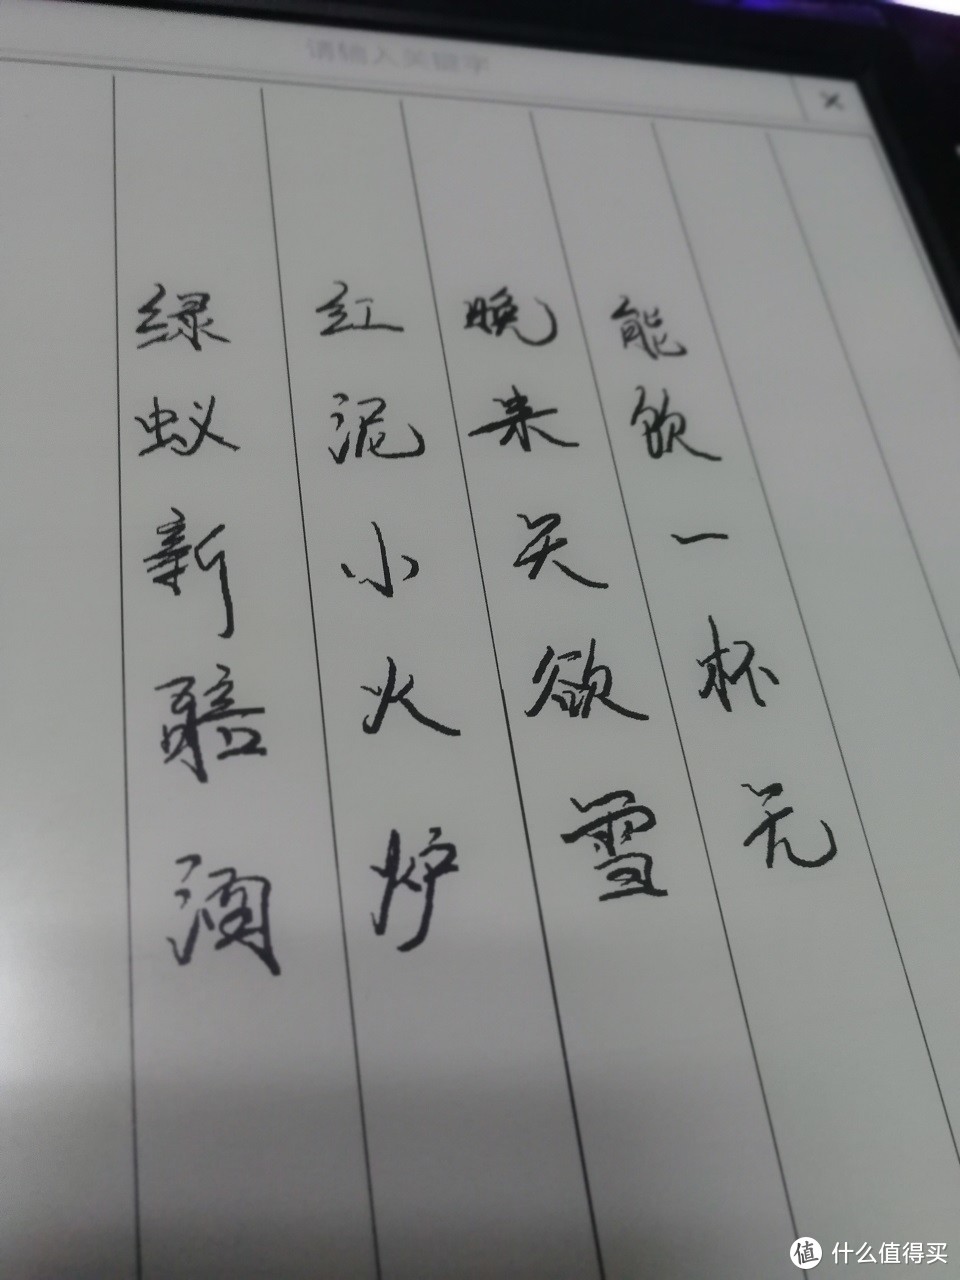 请输入关键字
绿蚁新醅酒
红泥小火炉
晚来天欲雪
能饮一杯无
值 什么值得买